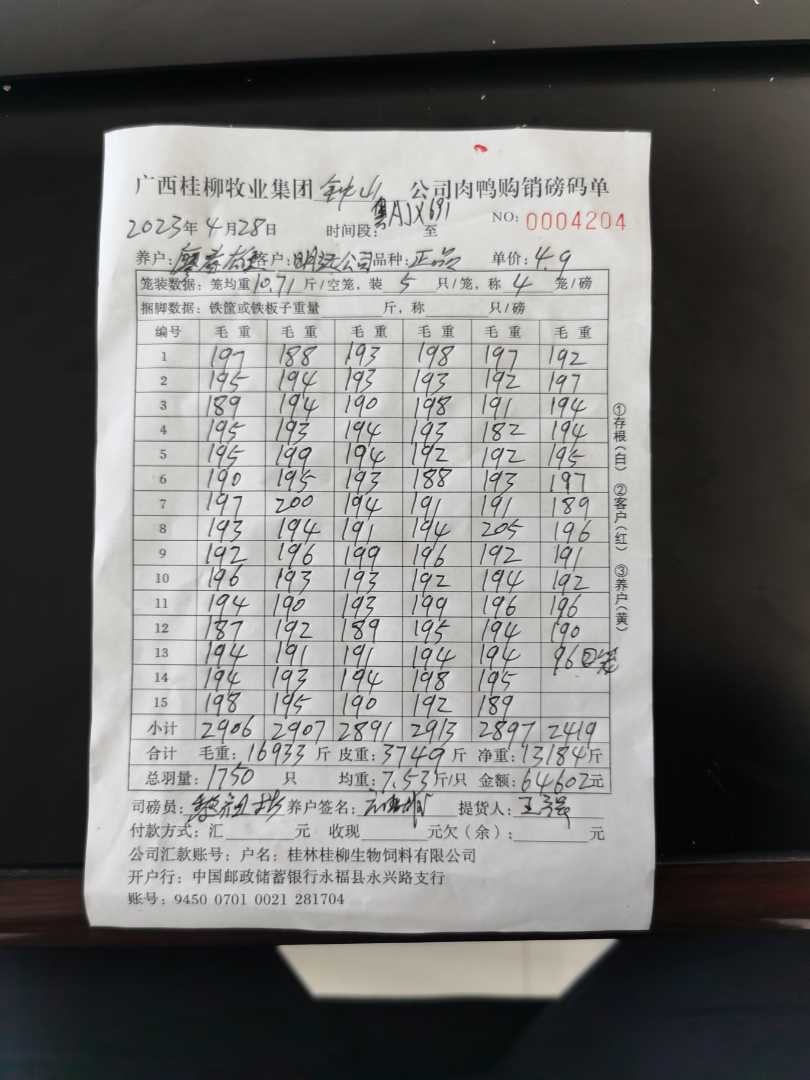 广西桂柳牧业集团 钟山 公司肉鸭购销磅码单
粤AJX691
2023年4月28日 时间段: 至 NO: 0004204
养户: 廖 雄 客户: 明 公司 品种: 正品 单价: 4.9
笼装数据: 笼均重 10.71 斤/空笼, 装 5 只/笼, 称 4 笼/磅
捆脚数据: 铁筐或铁板子重量 斤, 称 只/磅
编号 毛重 毛重 毛重 毛重 毛重 毛重
1 197 188 193 198 197 192
2 195 194 193 193 192 197
3 189 194 190 198 191 194
4 195 193 194 193 182 194
5 195 199 194 192 192 195
6 190 195 193 188 193 197
7 197 200 194 191 191 189
8 193 194 191 194 205 196
9 192 196 199 196 192 191
10 196 193 193 192 194 192
11 194 190 193 199 196 196
12 187 192 189 195 194 190
13 194 191 191 194 194 96 ②笼
14 194 193 194 198 195
15 198 195 190 192 189
小计 2906 2907 2891 2913 2897 2419
合计 毛重: 16933 斤 皮重: 3749 斤 净重: 13184 斤
总羽量: 1750 只 均重: 7.53 斤/只 金额: 64602 元
司磅员: 养户签名: 提货人: 王
付款方式: 汇 元 收现 元欠(余): 元
公司汇款账号: 户名: 桂林桂柳生物饲料有限公司
开户行: 中国邮政储蓄银行永福县永兴路支行
账号: 9450 0701 0021 281704
①存根(白) ②客户(红) ③养户(黄)